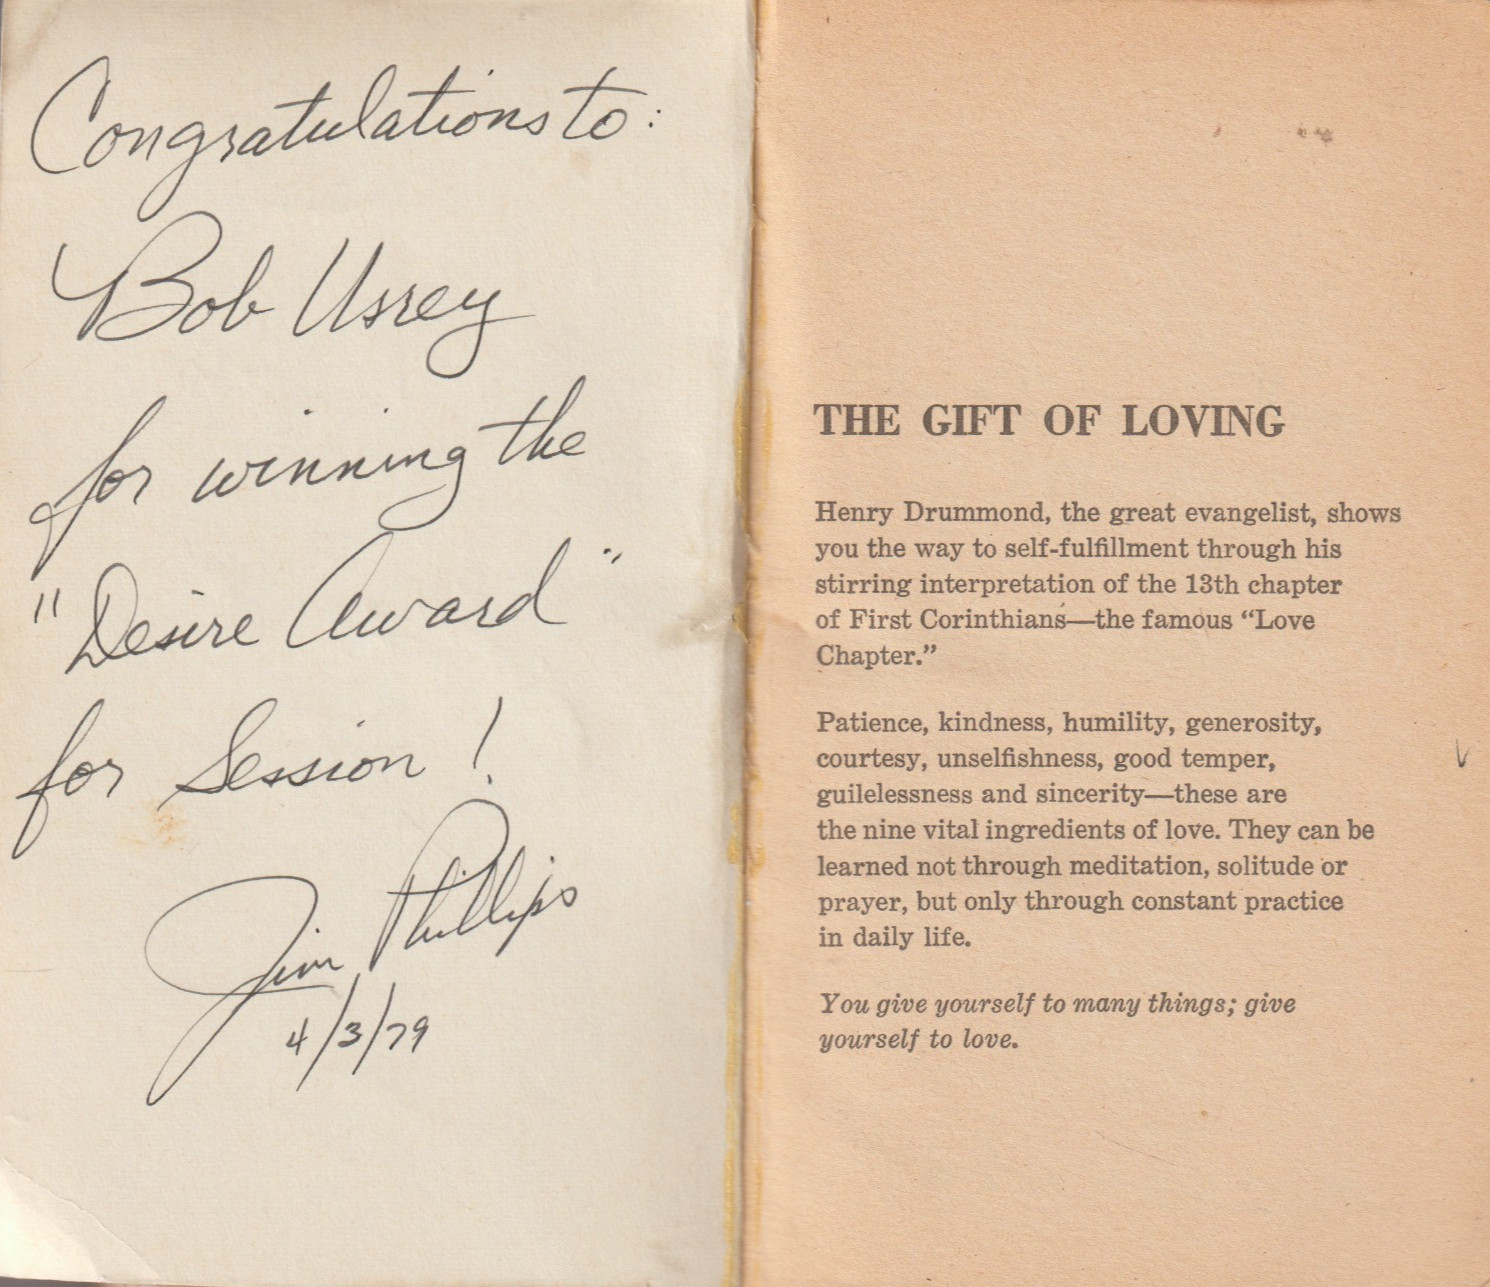 Congratulations to:
Bob Ussrey
for winning the
"Desire Award"
for Session!
Jim Phillips
4/3/79
THE GIFT OF LOVING
Henry Drummond, the great evangelist, shows
you the way to self-fulfillment through his
stirring interpretation of the 13th chapter
of First Corinthians—the famous “Love
Chapter.”
Patience, kindness, humility, generosity,
courtesy, unselfishness, good temper,
guilelessness and sincerity—these are
the nine vital ingredients of love. They can be
learned not through meditation, solitude or
prayer, but only through constant practice
in daily life.
You give yourself to many things; give
yourself to love.